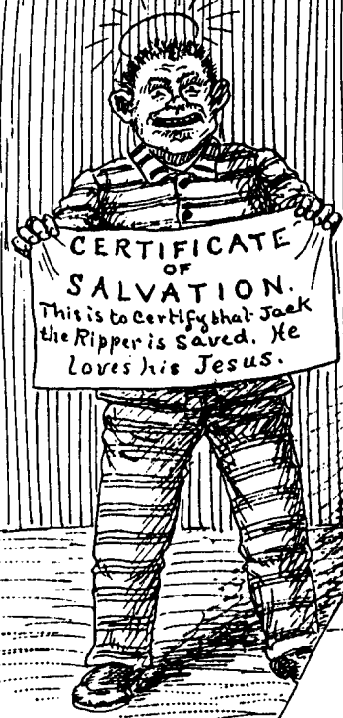 CERTIFICATE
OF
SALVATION.
This is to Certify that Jack
the Ripper is Saved. He
loves his Jesus.